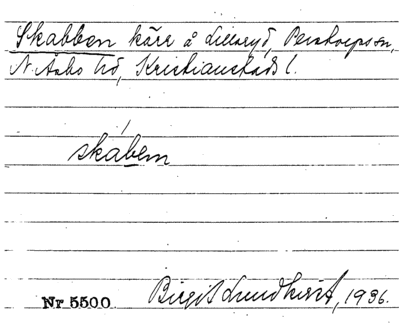 Skabben kärr å Lillaryd, Perstorps sn,
N. Åsbo hd, Kristianstads l.
skáben
Nr 5500 Birgit Lundkvist, 1936.